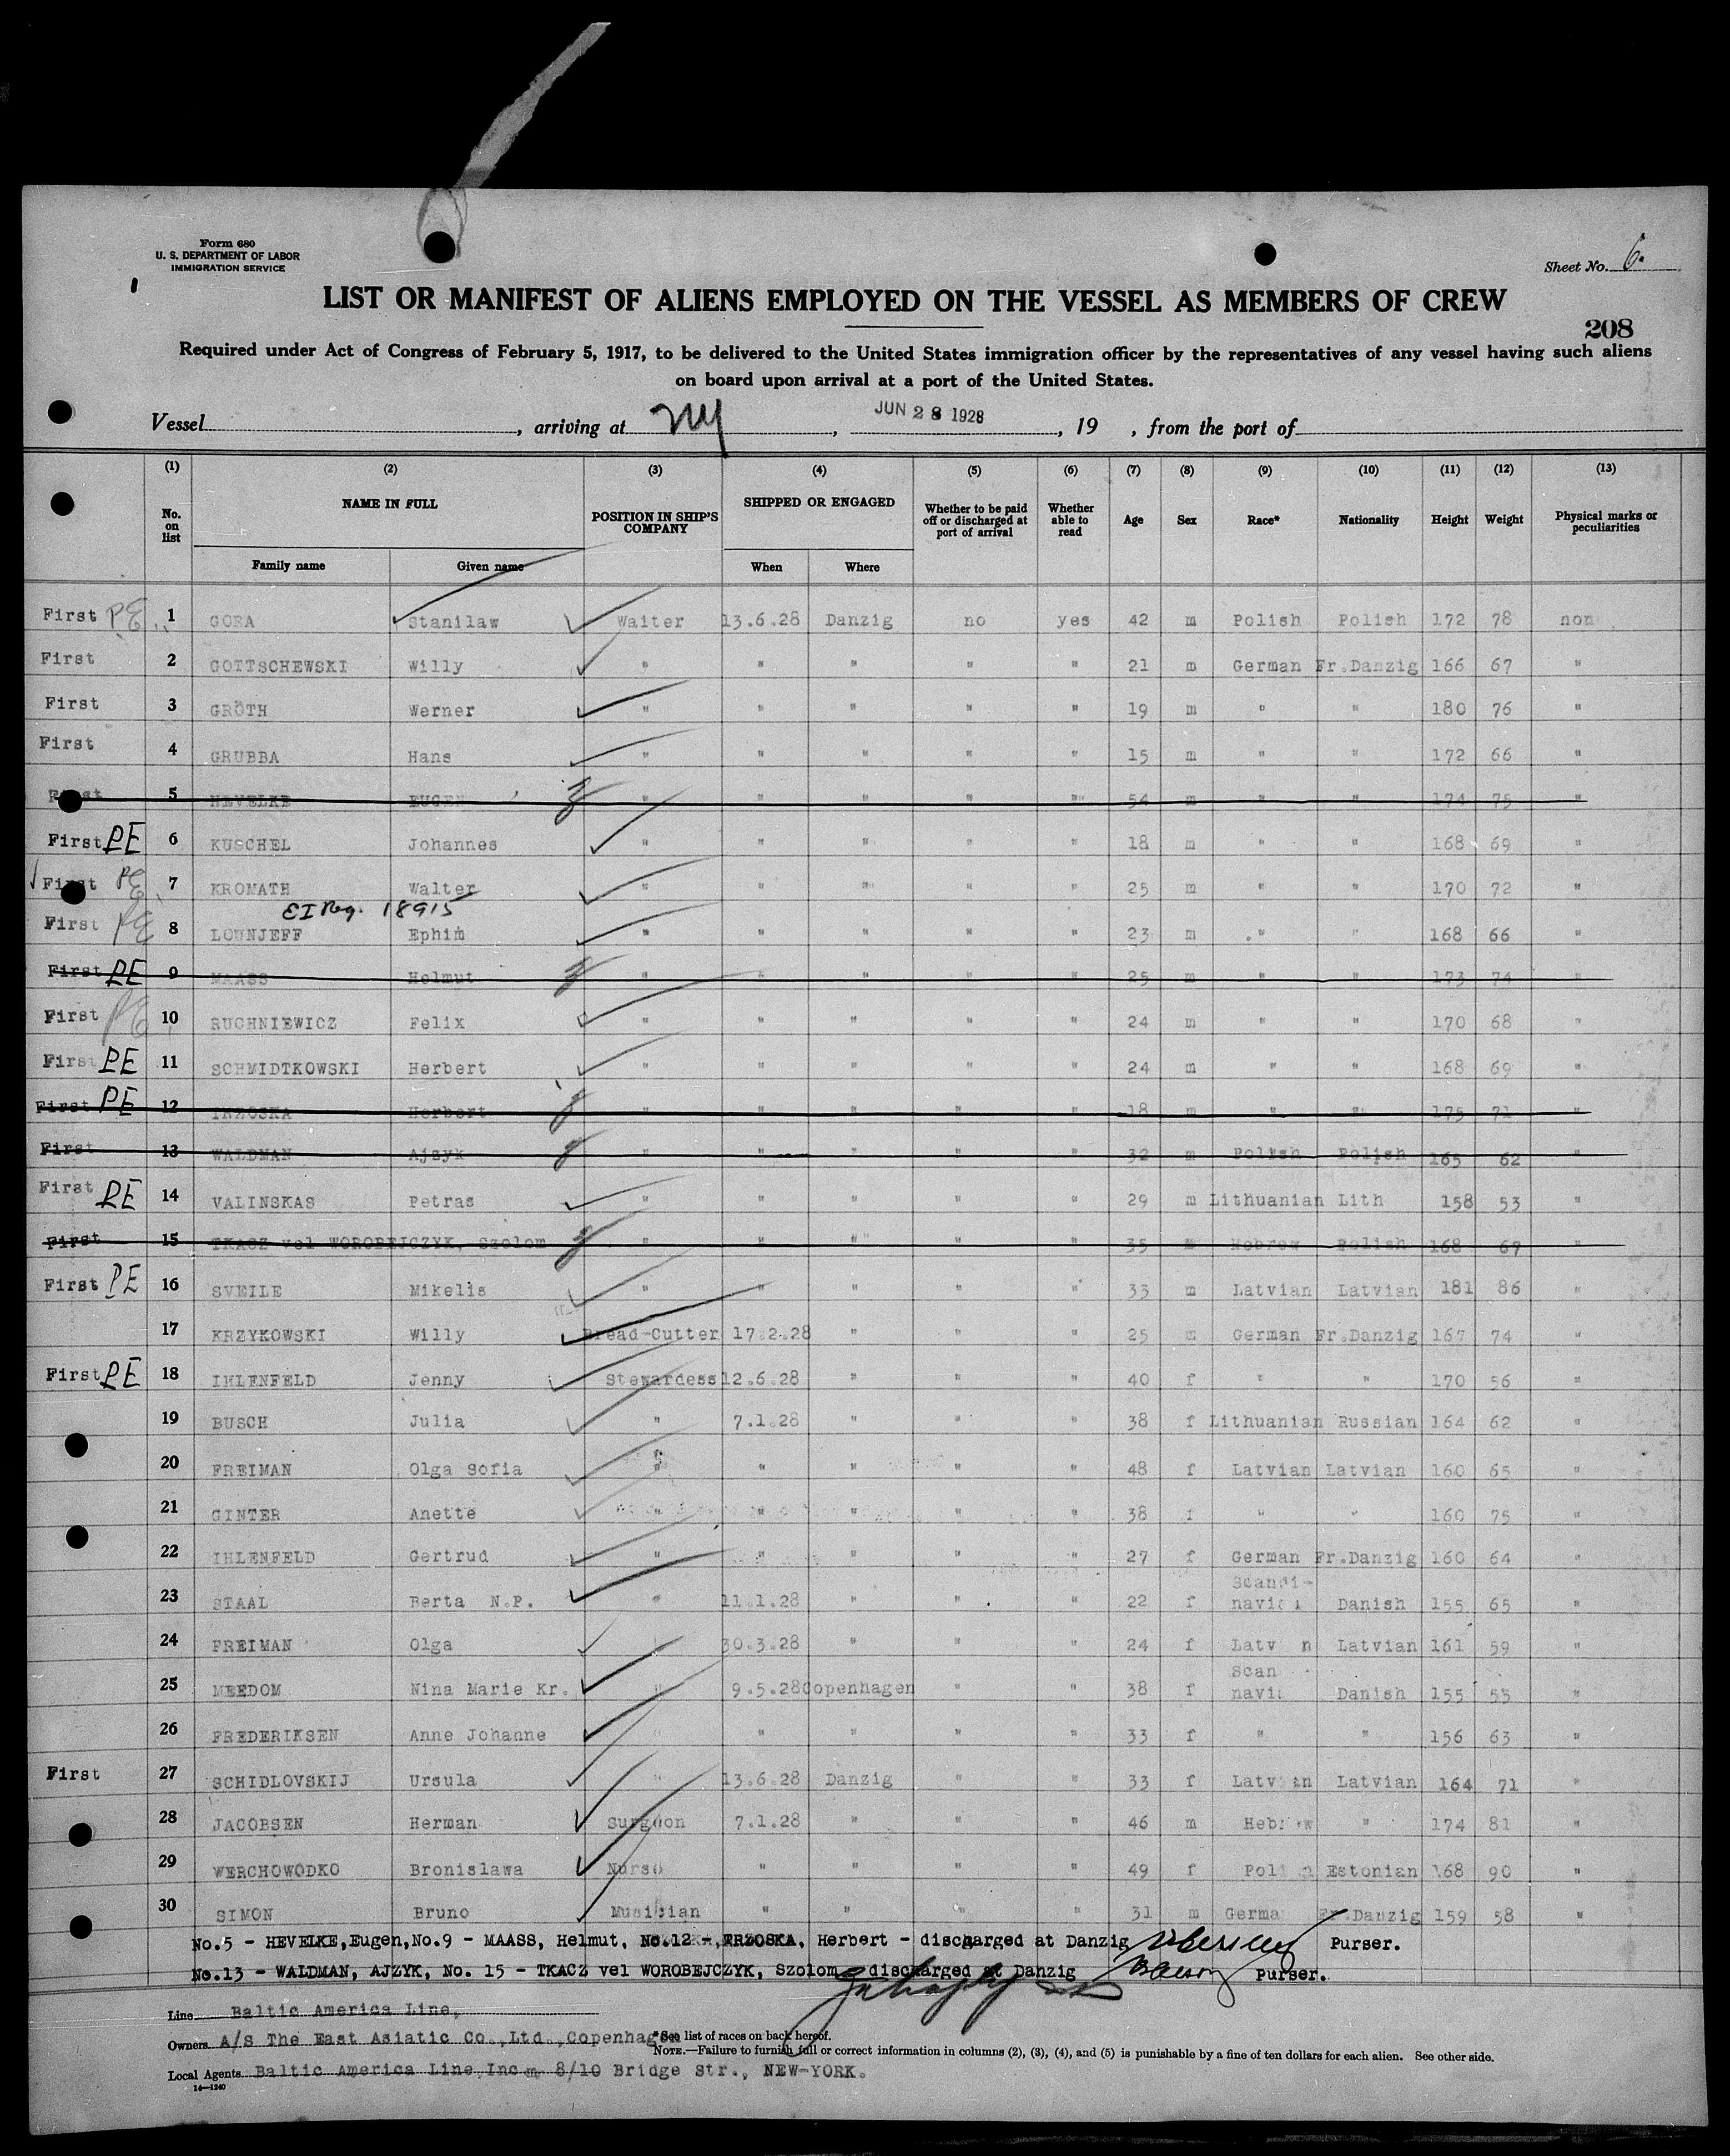 Form 680
U. S. DEPARTMENT OF LABOR
IMMIGRATION SERVICE
Sheet No. 6.
LIST OR MANIFEST OF ALIENS EMPLOYED ON THE VESSEL AS MEMBERS OF CREW
208
Required under Act of Congress of February 5, 1917, to be delivered to the United States immigration officer by the representatives of any vessel having such aliens
on board upon arrival at a port of the United States.
Vessel , arriving at NY , JUN 28 1928 , 19 , from the port of
(1) (2) (3) (4) (5) (6) (7) (8) (9) (10) (11) (12) (13)
No. on list NAME IN FULL POSITION IN SHIP'S COMPANY SHIPPED OR ENGAGED Whether to be paid off or discharged at port of arrival Whether able to read Age Sex Race* Nationality Height Weight Physical marks or peculiarities
Family name Given name When Where
First PE 1 GORA Stanilaw Waiter 13.6.28 Danzig no yes 42 m Polish Polish 172 78 non
First 2 GOTTSCHEWSKI Willy " " " " " 21 m German Fr.Danzig 166 67 "
First 3 GRÖTH Werner " " " " " 19 m " " 180 76 "
First 4 GRUBBA Hans " " " " " 15 m " " 172 66 "
First 5 HEVELKE EUGEN " " " " " 54 m " " 174 75 "
First PE 6 KUSCHEL Johannes " " " " " 18 m " " 168 69 "
First PE 7 KROMATH Walter " " " " " 25 m " " 170 72 "
EI Reg. 18915
First PE 8 LOUNJEFF Ephim " " " " " 23 m " " 168 66 "
First PE 9 MAASS Helmut " " " " " 25 m " " 173 74 "
First PE 10 RUCHNIEWICZ Felix " " " " " 24 m " " 170 68 "
First PE 11 SCHMIDTKOWSKI Herbert " " " " " 24 m " " 168 69 "
First PE 12 TRZOSKA Herbert " " " " " 18 m " " 175 71 "
First 13 WALDMAN Ajzyk " " " " " 32 m Polish Polish 165 62 "
First PE 14 VALINSKAS Petras " " " " " 29 m Lithuanian Lith 158 53 "
First 15 TKACZ vel WOROBEJCZYK, Szolom " " " " " 35 m Hebrew Polish 168 67 "
First PE 16 SVEILE Mikelis " " " " " 33 m Latvian Latvian 181 86 "
17 KRZYKOWSKI Willy Bread-Cutter 17.2.28 " " " 25 m German Fr.Danzig 167 74 "
First PE 18 IHLENFELD Jenny Stewardess 12.6.28 " " " 40 f " " 170 56 "
19 BUSCH Julia " 7.1.28 " " " 38 f Lithuanian Russian 164 62 "
20 FREIMAN Olga Sofia " " " " " 48 f Latvian Latvian 160 65 "
21 GINTER Anette " " " " 38 f " " 160 75 "
22 IHLENFELD Gertrud " " " " " 27 f German Fr.Danzig 160 64 "
23 STAAL Berta N.P. " 11.1.28 " " " 22 f Scandi-navia Danish 155 65 "
24 FREIMAN Olga 30.3.28 " " " 24 f Latv n Latvian 161 59 "
25 MEEDOM Nina Marie Kr. " 9.5.28 Copenhagen " " 38 f Scan navi Danish 155 55 "
26 FREDERIKSEN Anne Johanne " " " " " 33 f " " 156 63 "
First 27 SCHIDLOVSKIJ Ursula " 13.6.28 Danzig " " 33 f Latvian Latvian 164 71 "
28 JACOBSEN Herman Surgeon 7.1.28 " " " 46 m Hebrew " 174 81 "
29 WERCHOWODKO Bronislawa Nurse " " " " 49 f Polish Estonian 168 90 "
30 SIMON Bruno Musician " " " " 31 m German Fr.Danzig 159 58 "
No.5 - HEVELKE,Eugen,No.9 - MAASS, Helmut, No.12 - TRZOSKA, Herbert - discharged at Danzig Purser.
No.13 - WALDMAN, AJZYK, No. 15 - TKACZ vel WOROBEJCZYK, Szolom - discharged at Danzig Purser.
Line Baltic America Line,
Owners A/S The East Asiatic Co.,Ltd.,Copenhagen
*See list of races on back hereof.
NOTE.—Failure to furnish full or correct information in columns (2), (3), (4), and (5) is punishable by a fine of ten dollars for each alien. See other side.
Local Agents Baltic America Line,Inc 8/10 Bridge Str., NEW-YORK.
14—1240